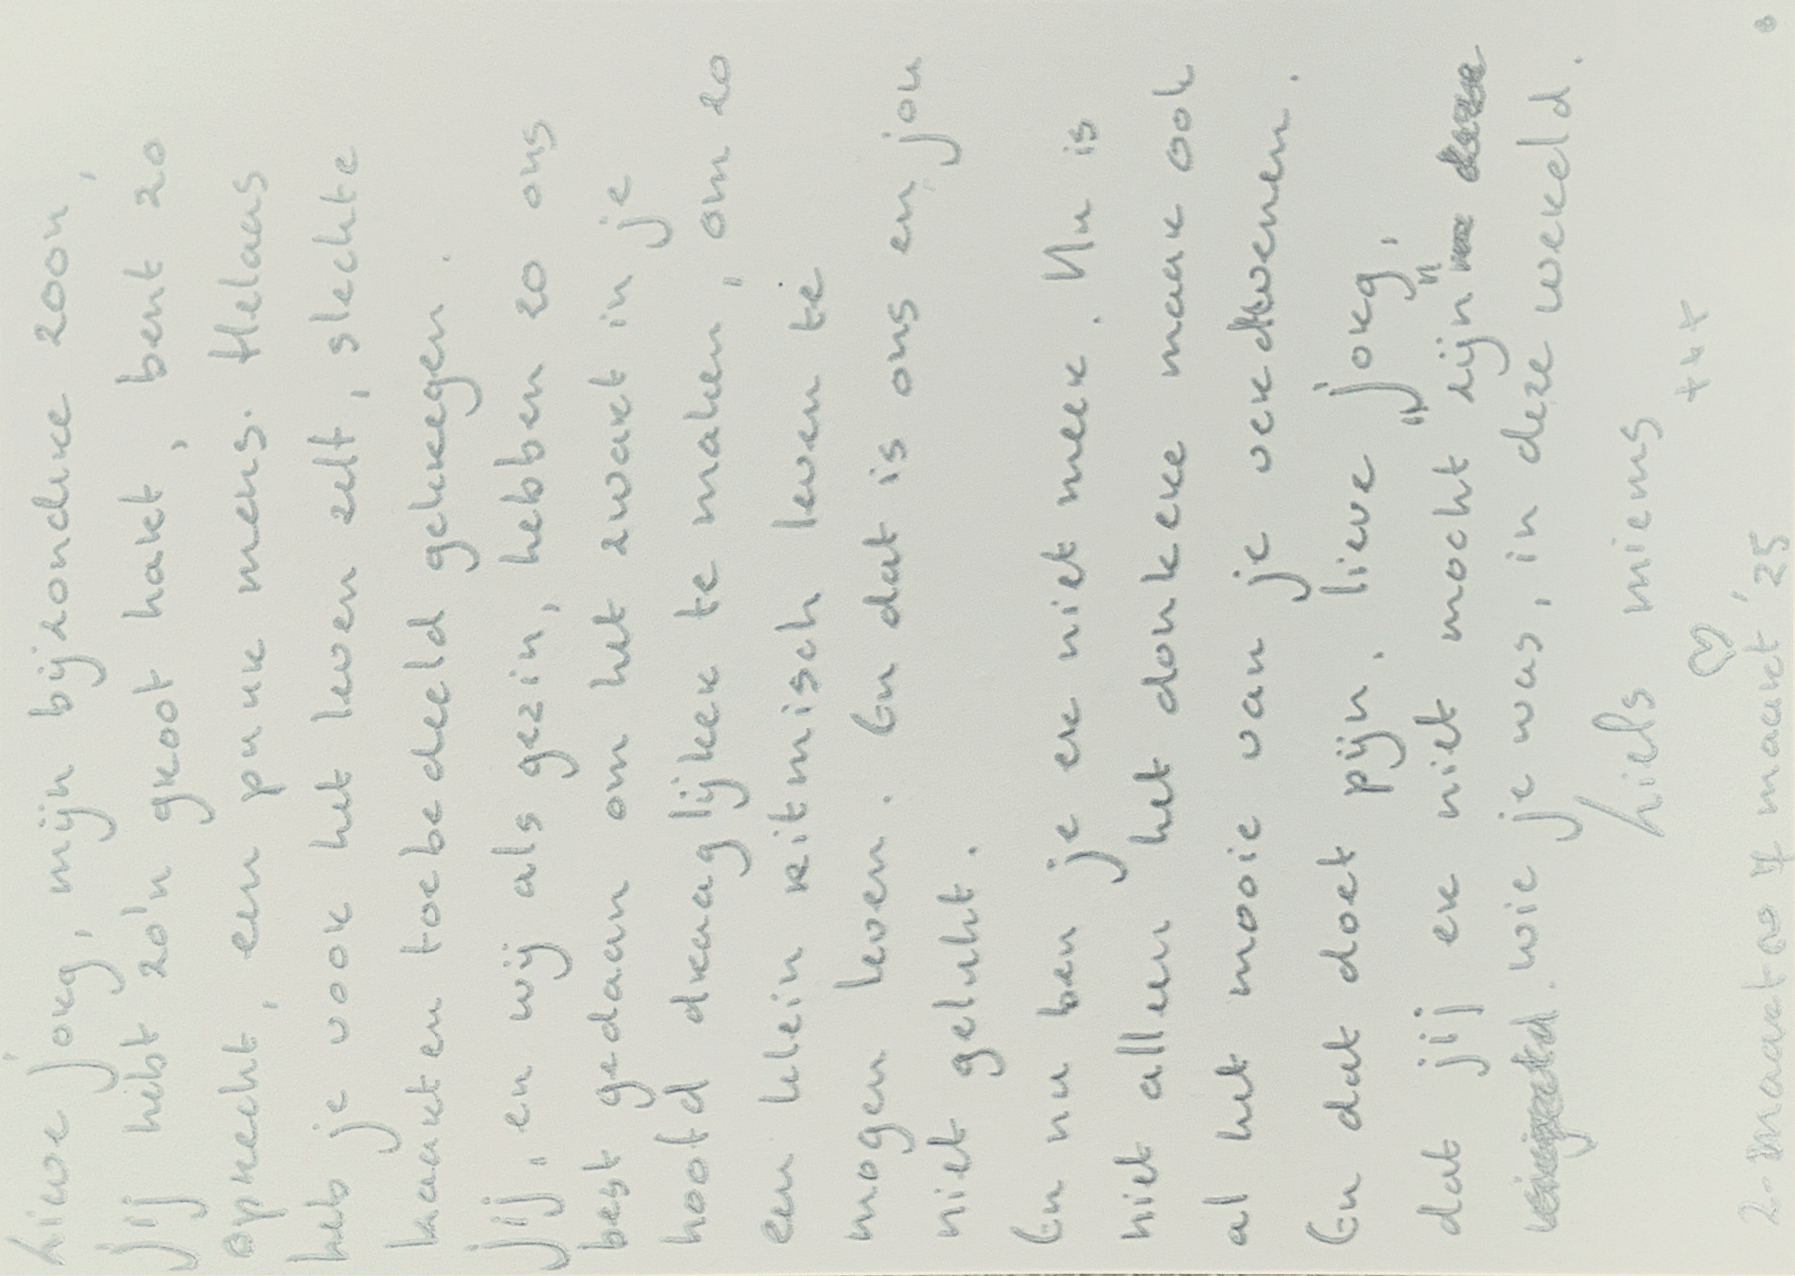 Lieve jorg, mijn bijzondere zoon,
jij hebt zo'n groot hart, bent zo
oprecht, een puur mens. Helaas
heb je voor het leven zelf, slechte
kaarten toebedeeld gekregen.
jij, en wij als gezin, hebben zo ons
best gedaan om het zwart in je
hoofd draaglijker te maken, om zo
een klein ritmisch leven te
mogen leven. En dat is ons en jou
niet gelukt.
En nu ben je er niet meer. Nu is
niet alleen het donkere maar ook
al het mooie van je verdwenen.
En dat doet pijn. lieve "jorg",
dat jij er niet mocht zijn
wie je was, in deze wereld.
Liefs miems
♡ xxx
20 maart of maart '25